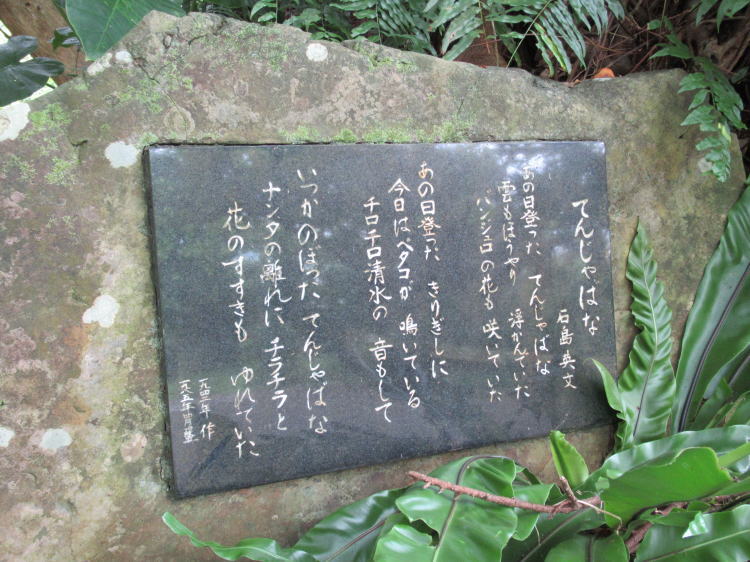 てんじゃばな
石島英文
あの日登った てんじゃばな
雲もほうやり 浮かんでいた
バンジロの花も 咲いていた
あの日登った きりぎしに
今日はペタコが 鳴いている
チロチロ清水の 音もして
いつかのぼった てんじゃばな
ナンタの離れに チラチラと
花のすすきも ゆれていた
一九四二年 作
一九八五年